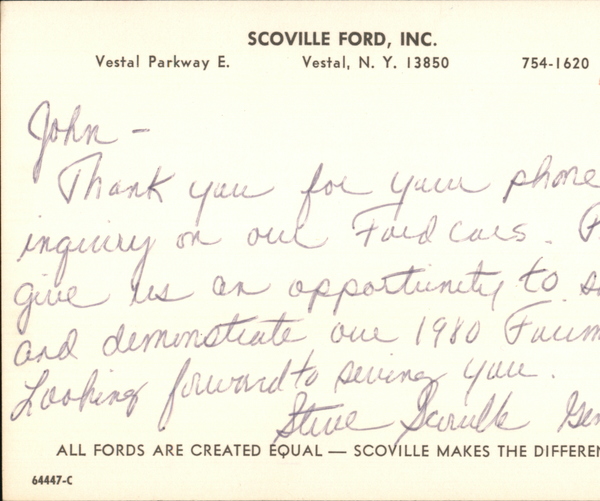 SCOVILLE FORD, INC.
Vestal Parkway E. Vestal, N. Y. 13850 754-1620
John —
Thank you for your phone
inquiry on our Ford cars.
give us an opportunity to
and demonstrate our 1980
Looking forward to seeing you.
Steve Scoville
ALL FORDS ARE CREATED EQUAL — SCOVILLE MAKES THE DIFFEREN
64447-C